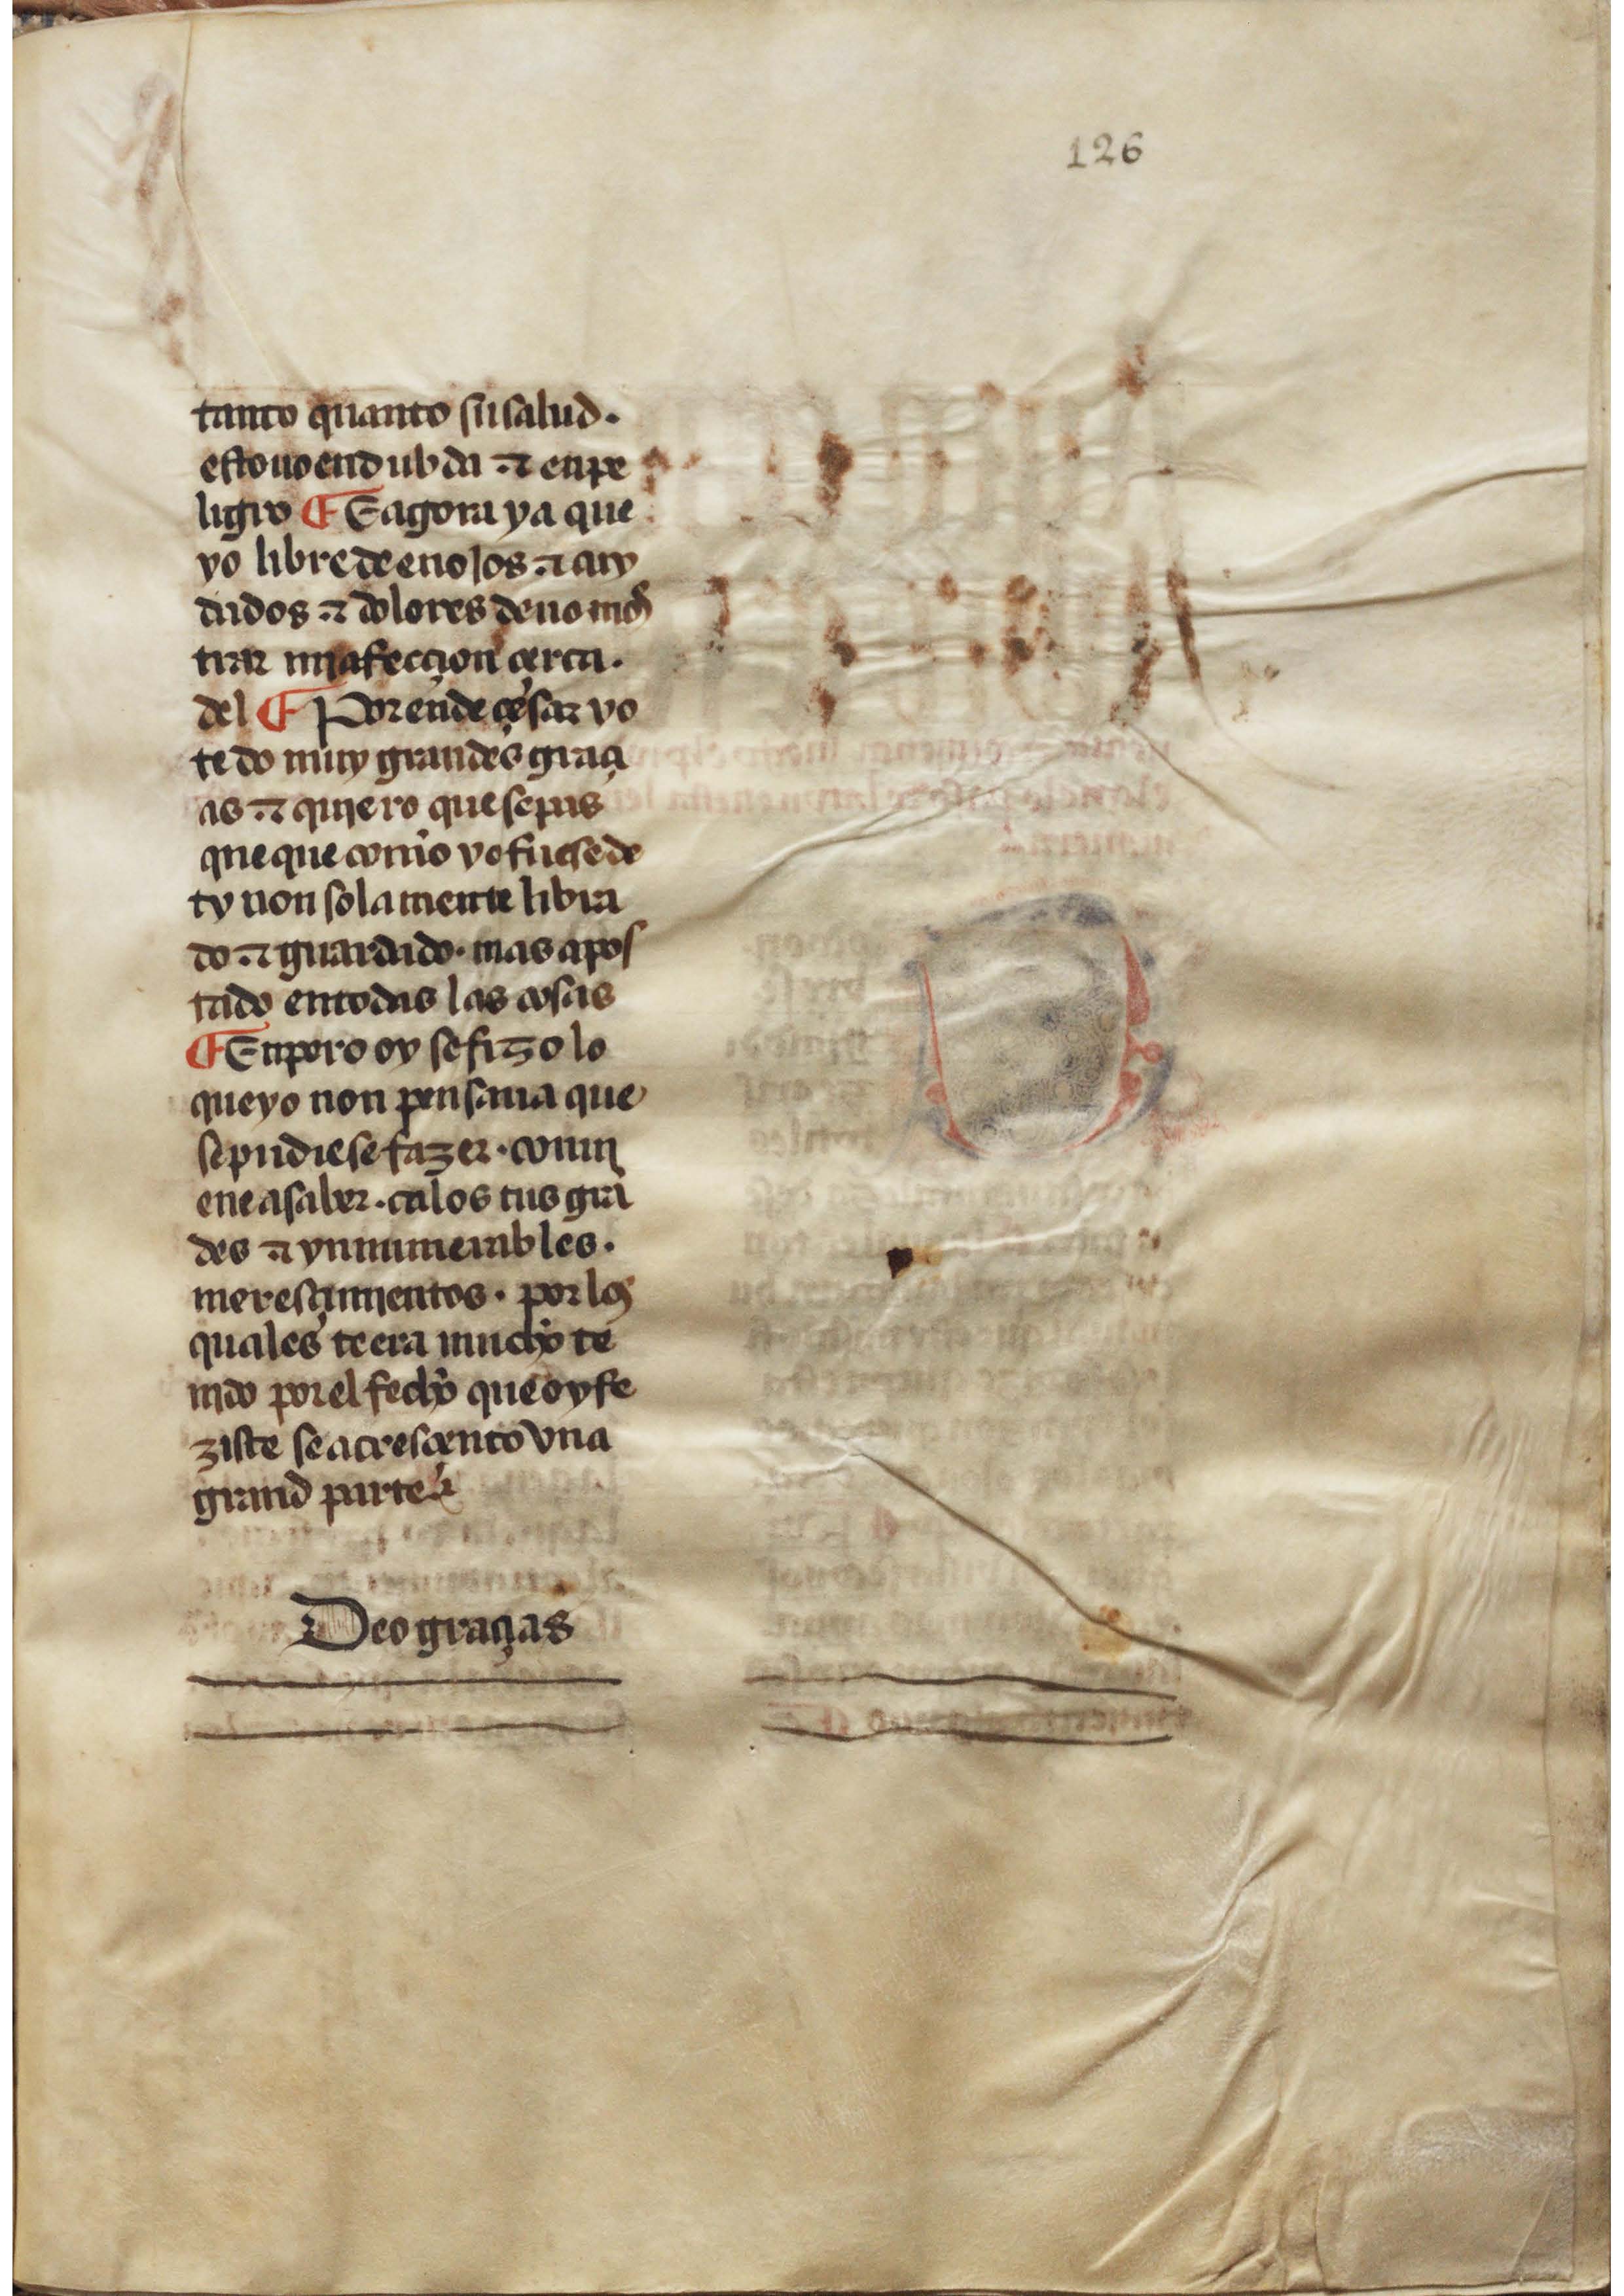 126
tanto quanto su salud.
estouo en dubda ⁊ en pe
ligro ¶ E agora ya que
yo libre de enoios ⁊ cuy
dados ⁊ dolores de no mos
trar mi afecçion çerca.
del ¶ Por ende çesar yo
te do muy grandes graçi
as ⁊ quiero que sepas
que que commo yo fuese de
ty non sola mente libra
do ⁊ guardado. mas apos
tado en todas las cosas
¶ Enpero oy se fizo lo
que yo non pensaua que
se pudiese fazer. conui
ene a saber. ca los tus grā
des ⁊ ynnumerables.
meresçimientos. por los
quales te era mucho te
nido por el fecho que oy fe
ziste se acresçento vna
grand parte
Deo graçias